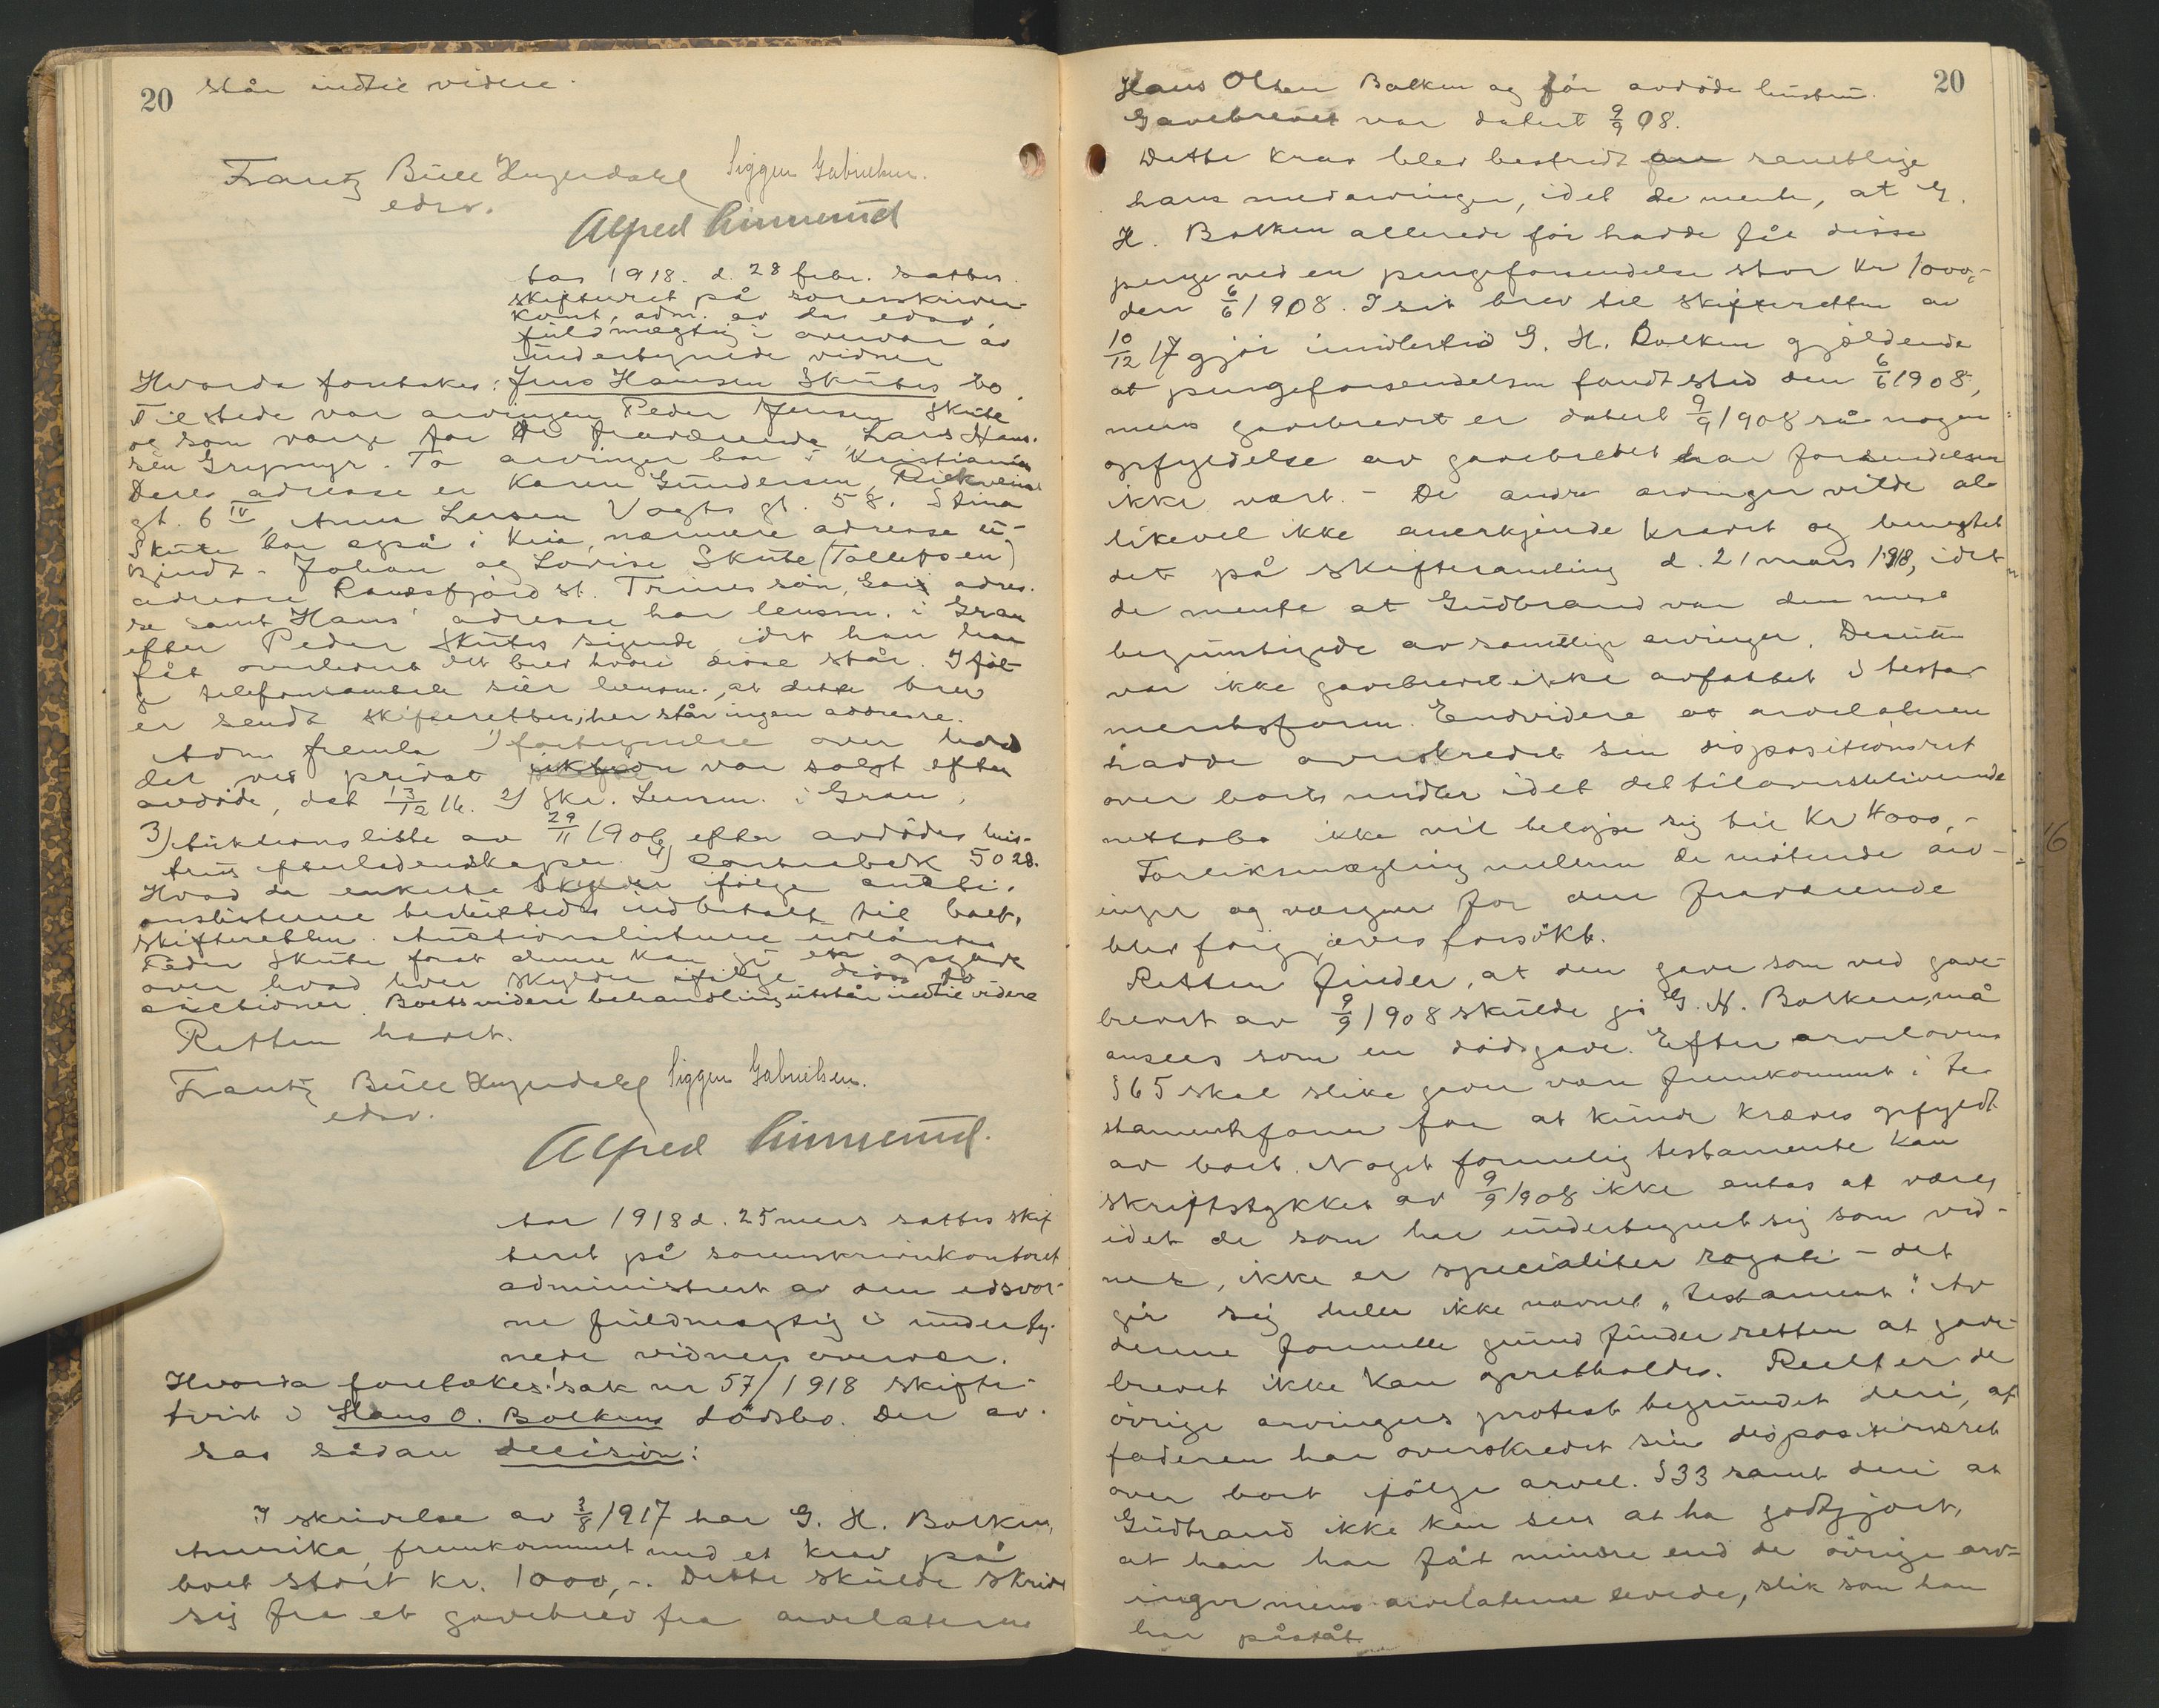 20
står indtil videre.
Frantz Bull Hygerdahl Sigger Gabrielsen.
edsv.
Alfred Linnerud
Aar 1918 d. 28 febr. sattes
skifteret på sorenskriver-
kont, adm. av den edsv.
fuldmægtig i overvær av
undertegnede vidner
Hvorda foretokes: Jens Hansen Skutes bo.
Tilstede var arvingen Peder Jensen Skute
og som værge for de fraværende Lars Han-
sen Grymyr. To arvinger bor i Kristiania
Deres adresse er Karen Gundersen,
gt. 6 IV, Anna Larsen Vogts gt. 58. Stina
Skute bor også i Kria, nærmere adresse u-
kjendt. Johan og Lovise Skute (Tollefsen)
adresse Randsfjord st. Trines søn, adres-
se samt Hans' adresse har lensm. i Gran
efter Peder Skutes sigende, idet han har
fåt overlevert et brev hvori disse står. Iføl-
ge telefonsamtale sier lensm., at dette brev
er sendt skifteretten; her står ingen addresse.
Adm fremla 1) fortegnelse over hvad
der ved privat auktion var solgt efter
avdøde, dat 13/12 16. 2) Skr. Lensm. i Gran,
3) Auktionsliste av 29/11 1906 efter avdødes hus-
trus efterladenskaper. 4) Contrabok 5028.
Hvad de enkelte skylder ifølge aukti-
onslisterne besluttedes indbetalt til boet,
skifteretten. Auctionslisterne utlåntes
Peder Skute forat denne kan gi en opgave
over hvad hver skylder ifølge disse to
auctioner. Boets videre behandling utstår indtil videre
Retten hævet.
Frantz Bull Hygerdahl Sigger Gabrielsen.
edsv.
Alfred Linnerud.
Aar 1918 d. 25 mars sattes skif
teret på sorenskriverkontoret
administrert av den edsvor-
ne fuldmægtig i underteg-
nede vidners overvær.
Hvorda foretokes: sak nr 57/1918 skifte-
tvist i Hans O. Bolkens dødsbo. Der av-
saes sådan decision:
I skrivelse av 2/8 1917 har G. H. Bolken,
Amerika, fremkommet med et krav på
boet stort kr. 1000,-. Dette skulde skrive
sig fra et gavebrev fra arvelateren
20
Hans Olsen Bolken og hans avdøde hustru.
Gavebrevet var datert 9/9 08.
Dette krav blev bestridt av samtlige
hans medarvinger, idet de mente, at G.
H. Bolken allerede før hadde fåt disse
penge ved en pengeforsendelse stor kr 1000,-
den 6/6 1908. I sit brev til skifteretten av
10/12 17 gjør imidlertid G. H. Bolken gjældende
at pengeforsendelsen fandt sted den 6/6 1908,
mens gavebrevet er datert 9/9 1908 så nogen
opfyldelse av gavebrevet har forsendelsen
ikke vært. - De andre arvinger vilde al-
likevel ikke anerkjende kravet og benegtet
det på skiftesamling d. 21 mars 1918, idet
de mente at Gudbrand var den mest
begunstigede av samtlige arvinger. Desuten
var ikke gavebrevet ikke avfattet i testa-
mentsform. Endvidere at arvelateren
hadde overskredet sin dispositionsret
over boets midler idet det tiloversblivende
nettobo ikke vil beløpe sig til kr 4000,-
Forliksmægling mellem de møtende arv-
inger og værgen for den fraværende
blev forgjæves forsøkt.
Retten finder, at den gave som ved gave-
brevet av 9/9 1908 skulde gis G. H. Bolken, må
ansees som en dødsgave. Efter arvelovens
§ 65 skal slike gaver være fremkommet i te-
stamentsform for at kunde kræves opfyldt
av boet. Noget formelig testamente kan
skriftstykket av 9/9 1908 ikke antas at være,
idet de som har undertegnet sig som vid-
ner, ikke er specialiter rogati - det
gir sig heller ikke navnet "testament". Av
denne formelle grund finder retten at gave-
brevet ikke kan opretholdes. Reelt er de
øvrige arvingers protest begrundet deri, at
faderen har overskredet sin dispositionsret
over boet ifølge arvel. § 33 samt deri at
Gudbrand ikke kan sees at ha godtgjort,
at han har fåt mindre end de øvrige arv-
inger mens arvelaterne levede, slik som han
har påstått.